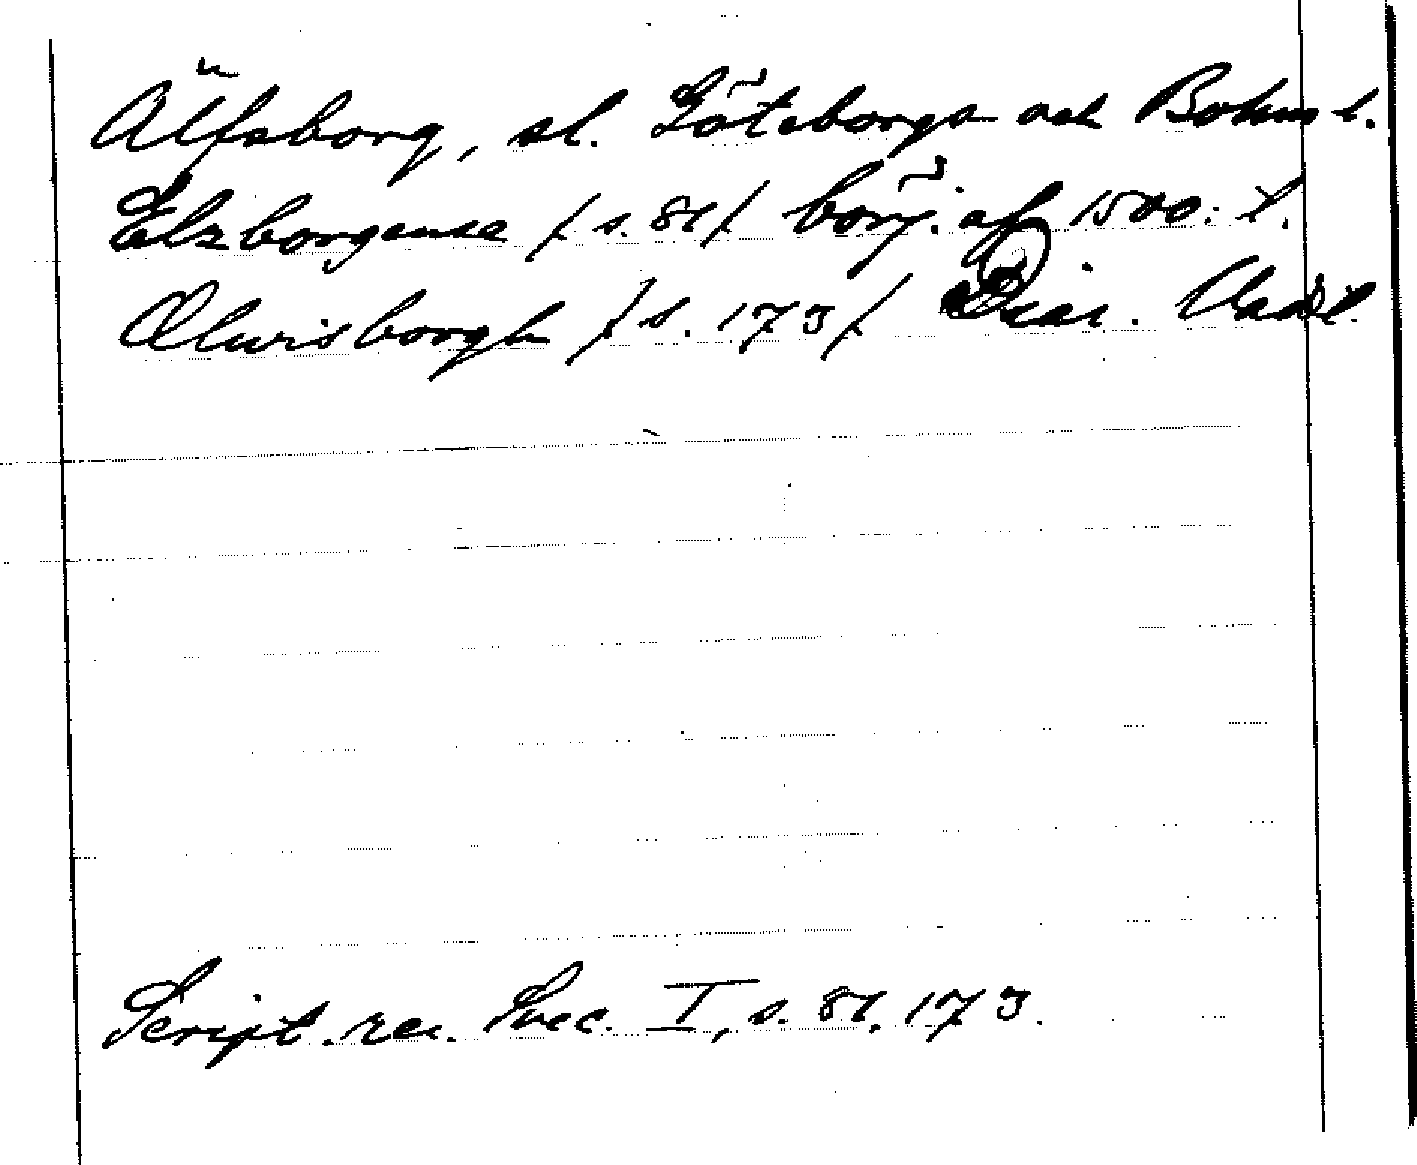 Älfsborg, sl. Göteborgs och Bohus l.
Elzborgense / s. 81 / börj. af 1500: t.
Ælwisborgh / s. 173 / Diar. Vadst.
Script. rer. Svec. I, s. 81, 173.